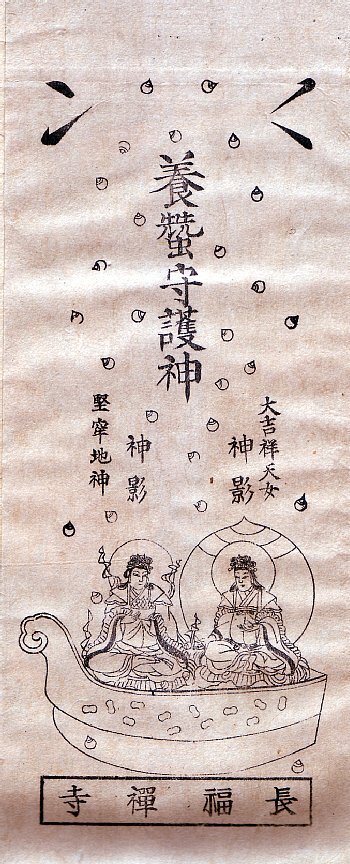 養蠶守護神
大吉祥天女
神影
神影
堅窂地神
長福禪寺